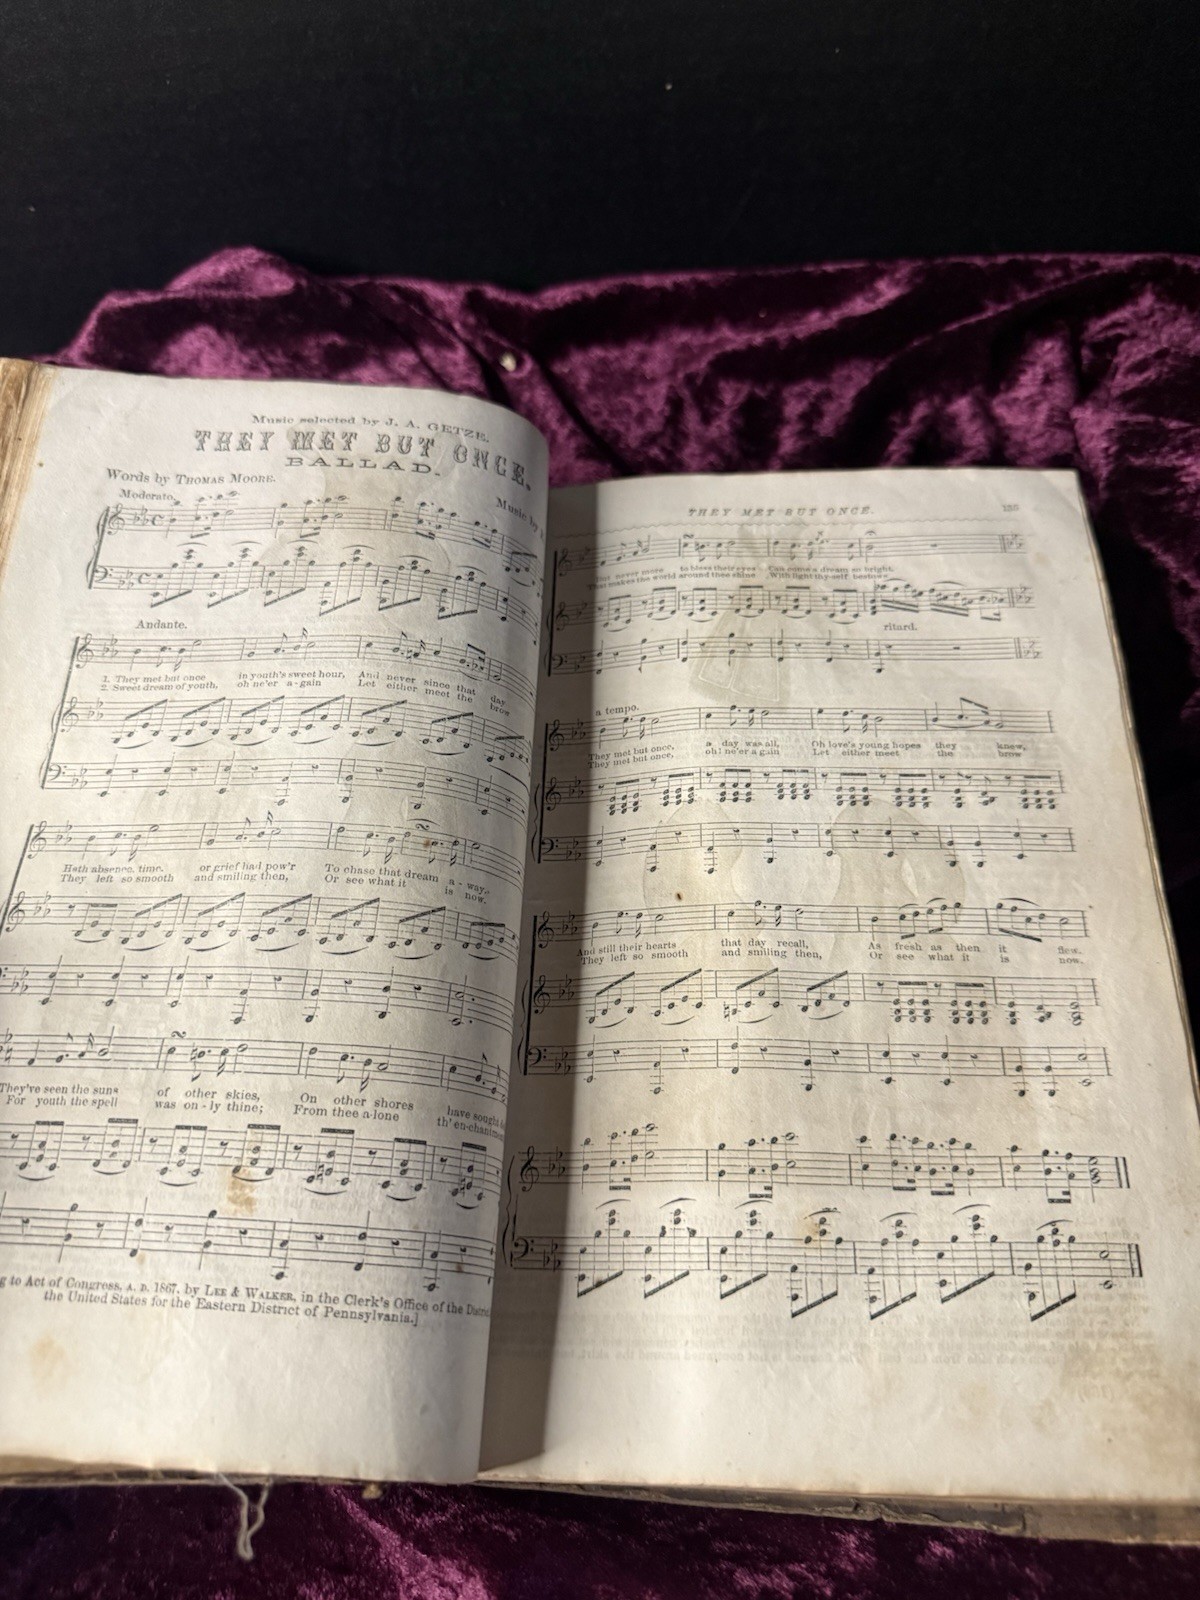 Music selected by J. A. GETZE.
THEY MET BUT ONCE.
BALLAD.
Words by THOMAS MOORE.
Music by
Moderato.
Andante.
1. They met but once in youth's sweet hour, And never since that day
2. Sweet dream of youth, oh ne'er a-gain Let either meet the brow
Hath absence, time, or grief had pow'r To chase that dream a-way.
They left so smooth and smiling then, Or see what it is now.
They're seen the suns of other skies, On other shores have sought
For youth the spell was on-ly thine; From thee a-lone th' en-chantm
g to Act of Congress, A. D. 1867, by LEE & WALKER, in the Clerk's Office of the Distri
the United States for the Eastern District of Pennsylvania.]
THEY MET BUT ONCE.
But never more to bless their eyes Can come a dream so bright,
That makes the world around thee shine With light thy-self
ritard.
a tempo.
They met but once, a day was all, Oh love's young hopes they knew,
They met but once, oh! ne'er a gain Let either meet the brow
And still their hearts that day recall, As fresh as then it flew.
They left so smooth and smiling then, Or see what it is now.